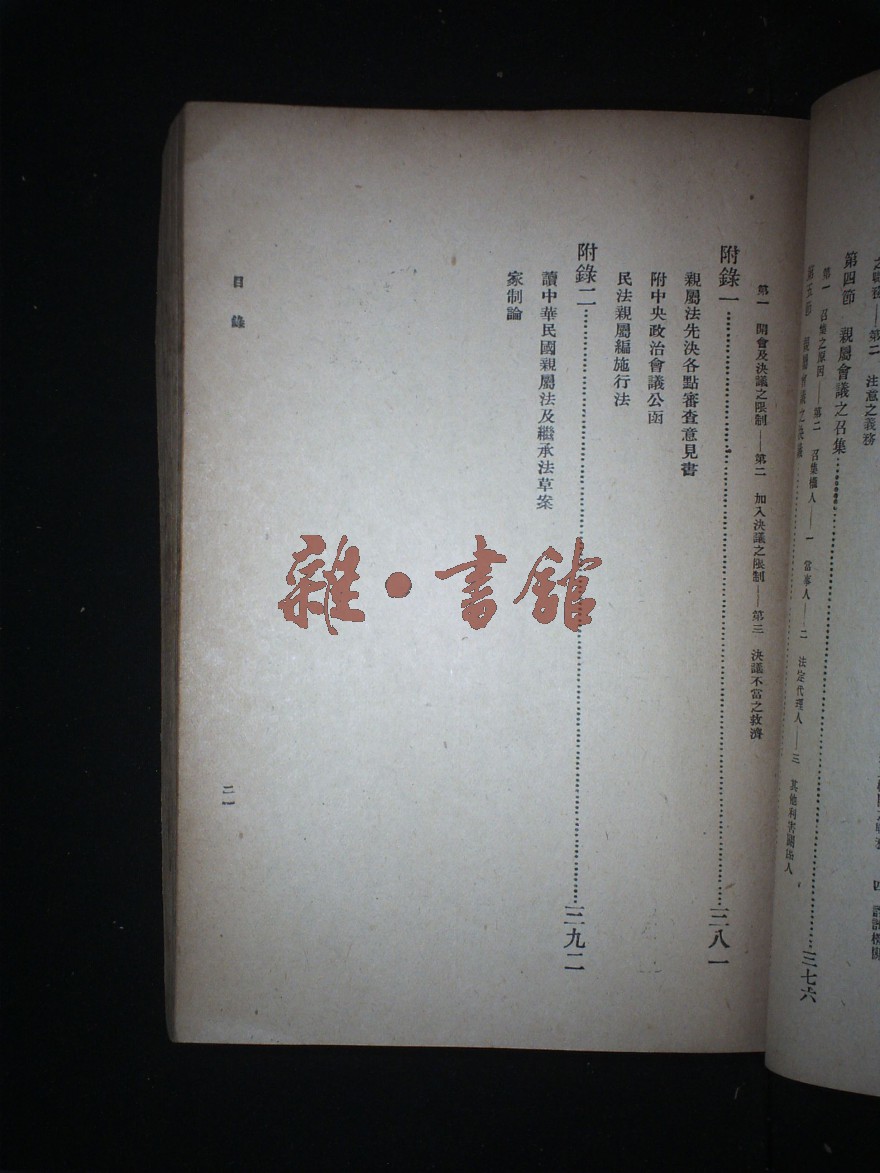 之職務——第二　注意之義務
第四節　親屬會議之召集
第一　召集之原因——第二　召集權人——一　當事人——二　法定代理人——三　其他利害關係人
第五節　親屬會議之決議……三七六
第一　開會及決議之限制——第二　加入決議之限制——第三　決議不當之救濟
附錄一……三八一
親屬法先決各點審查意見書
附中央政治會議公函
民法親屬編施行法
附錄二……三九二
讀中華民國親屬法及繼承法草案
家制論
目錄
二一
雜·書館